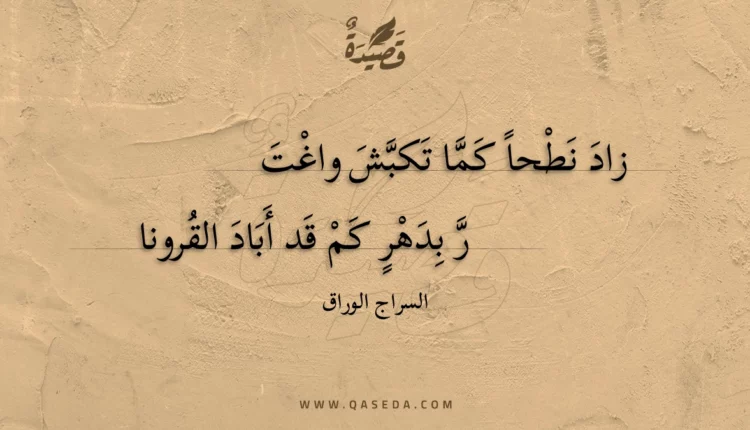 قَصِيدَةٌ
زادَ نَطْحاً كَمَّا تَكبَّشَ واغْتَ
رَّ بِدَهْرٍ كَمْ قَد أَبَادَ القُرونا
السراج الوراق
WWW.QASEDA.COM